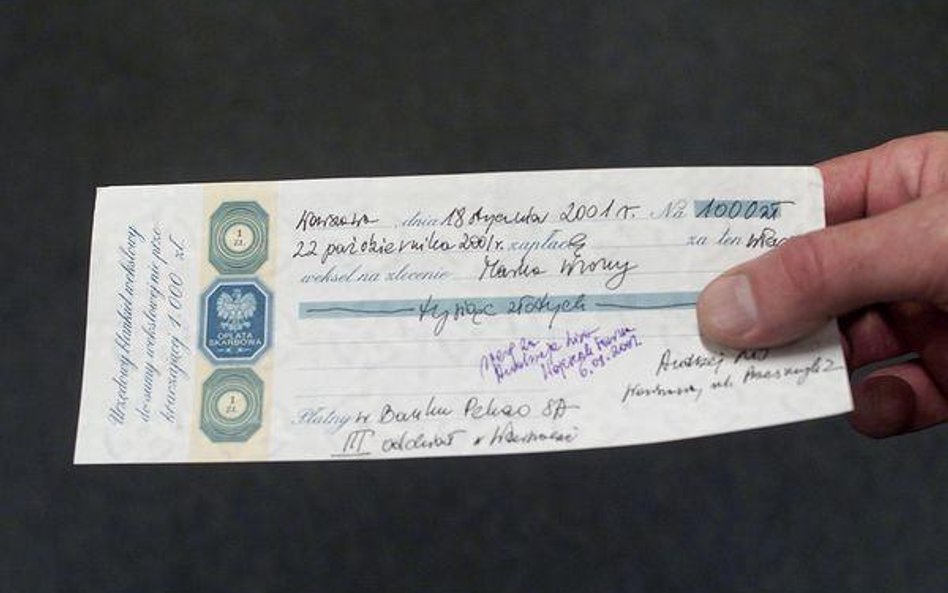 Urzędowy blankiet wekslowy
do sumy wekslowej nie prze-
kraczającej 1.000 zł.
1
ZŁ
OPŁATA
SKARBOWA
1
ZŁ
Warszawa, dnia 18 stycznia 2001 r. Na 1000 zł
22 października 2001 r. zapłacę za ten
weksel na zlecenie Marka Wrony
tysiąc złotych
6.01.2001
Andrzej
Warszawa, ul. 2
Płatny w Banku Pekao SA
III oddział w Warszawie